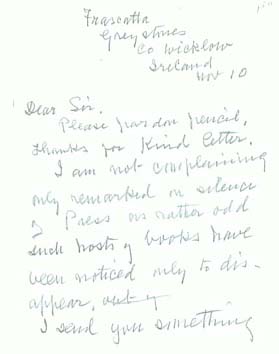 Frascatta
Greystones
Co Wicklow
Ireland
Nov 10
Dear Sir.
Please pardon pencil.
Thanks for kind letter.
I am not complaining
only remarked on silence
of Press as rather odd
such hosts of books have
been noticed only to dis-
appear, out of
I send you something